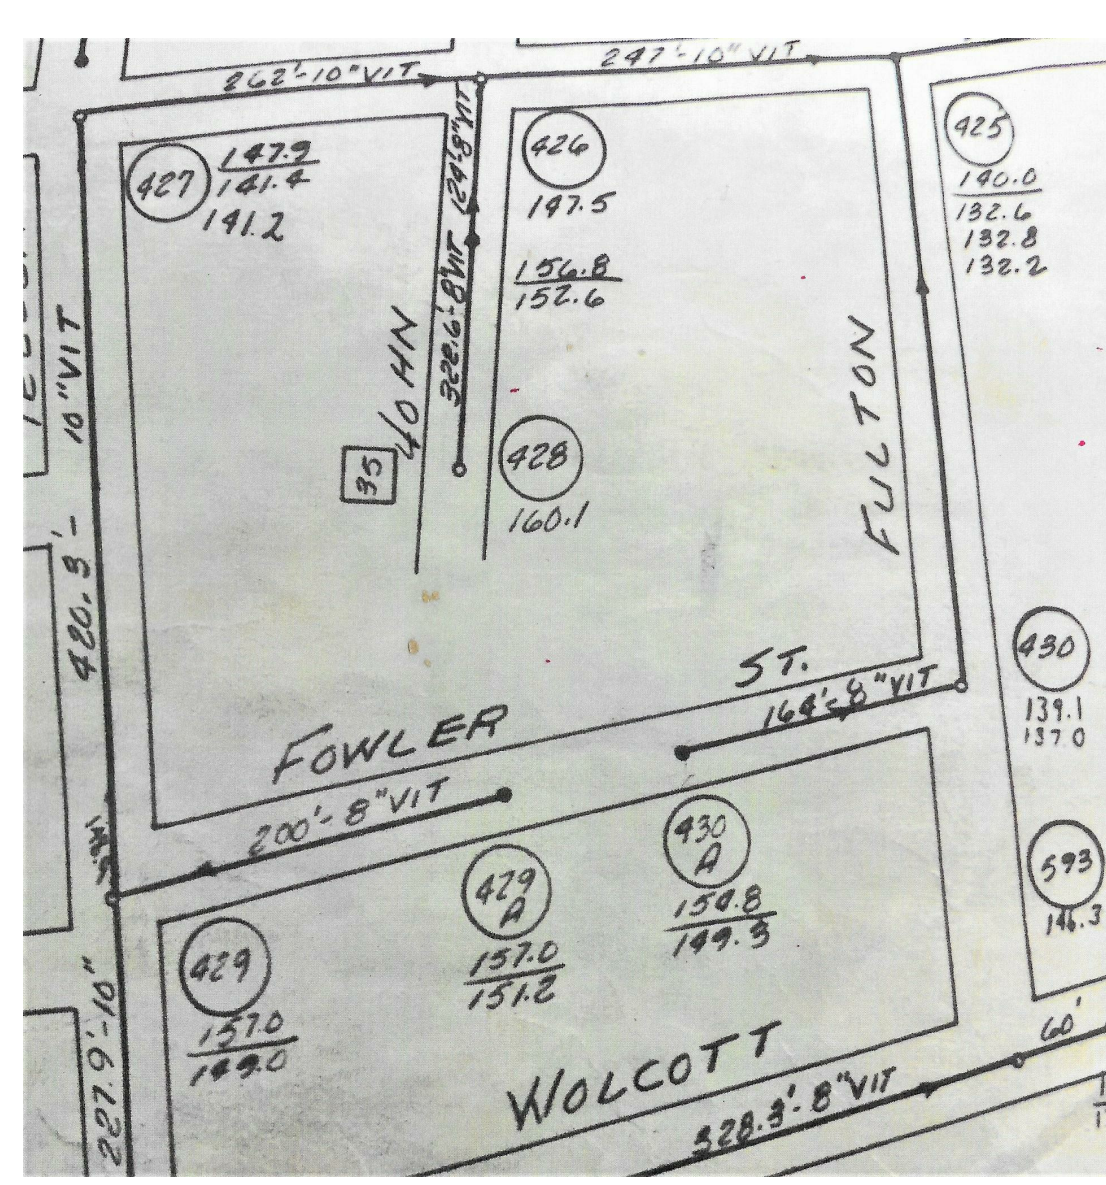 262'-10"VIT
247'-10"VIT
427
147.9
141.4
141.2
124'-8"VIT
426
147.5
156.8
152.6
425
140.0
132.6
132.8
132.2
10"VIT
420.3'-
322.6'-8"VIT
35
428
160.1
FULTON
430
139.1
137.0
FOWLER ST.
164'-8"VIT
200'-8"VIT
429
A
157.0
151.2
430
A
154.8
149.3
593
146.3
429
157.0
149.0
227.9'-10"
WOLCOTT
328.3'-8"VIT
60'